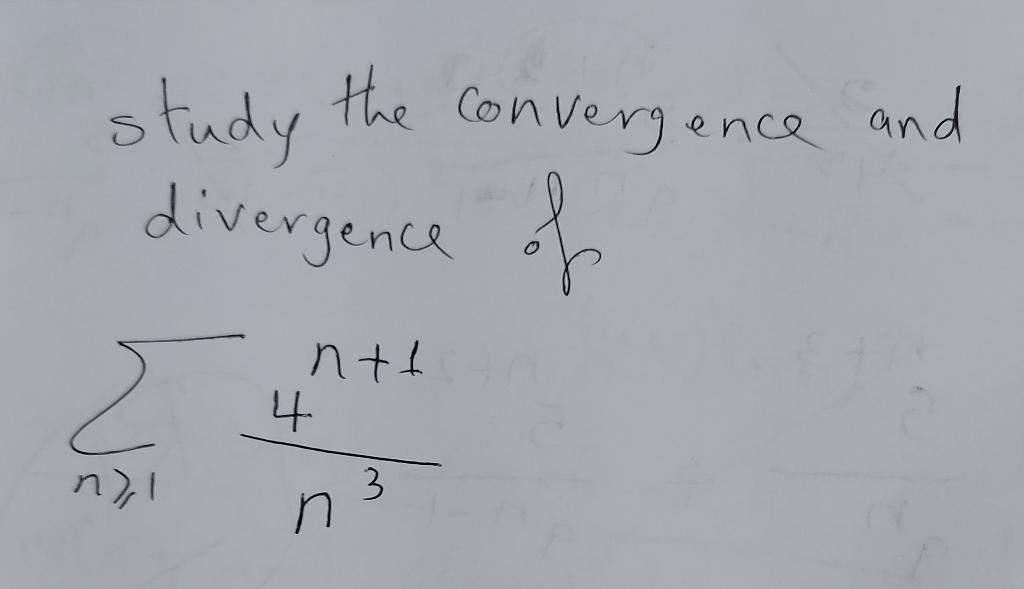 study the convergence and
divergence of
∑ 4^{n+1} / n^3
n⩾1